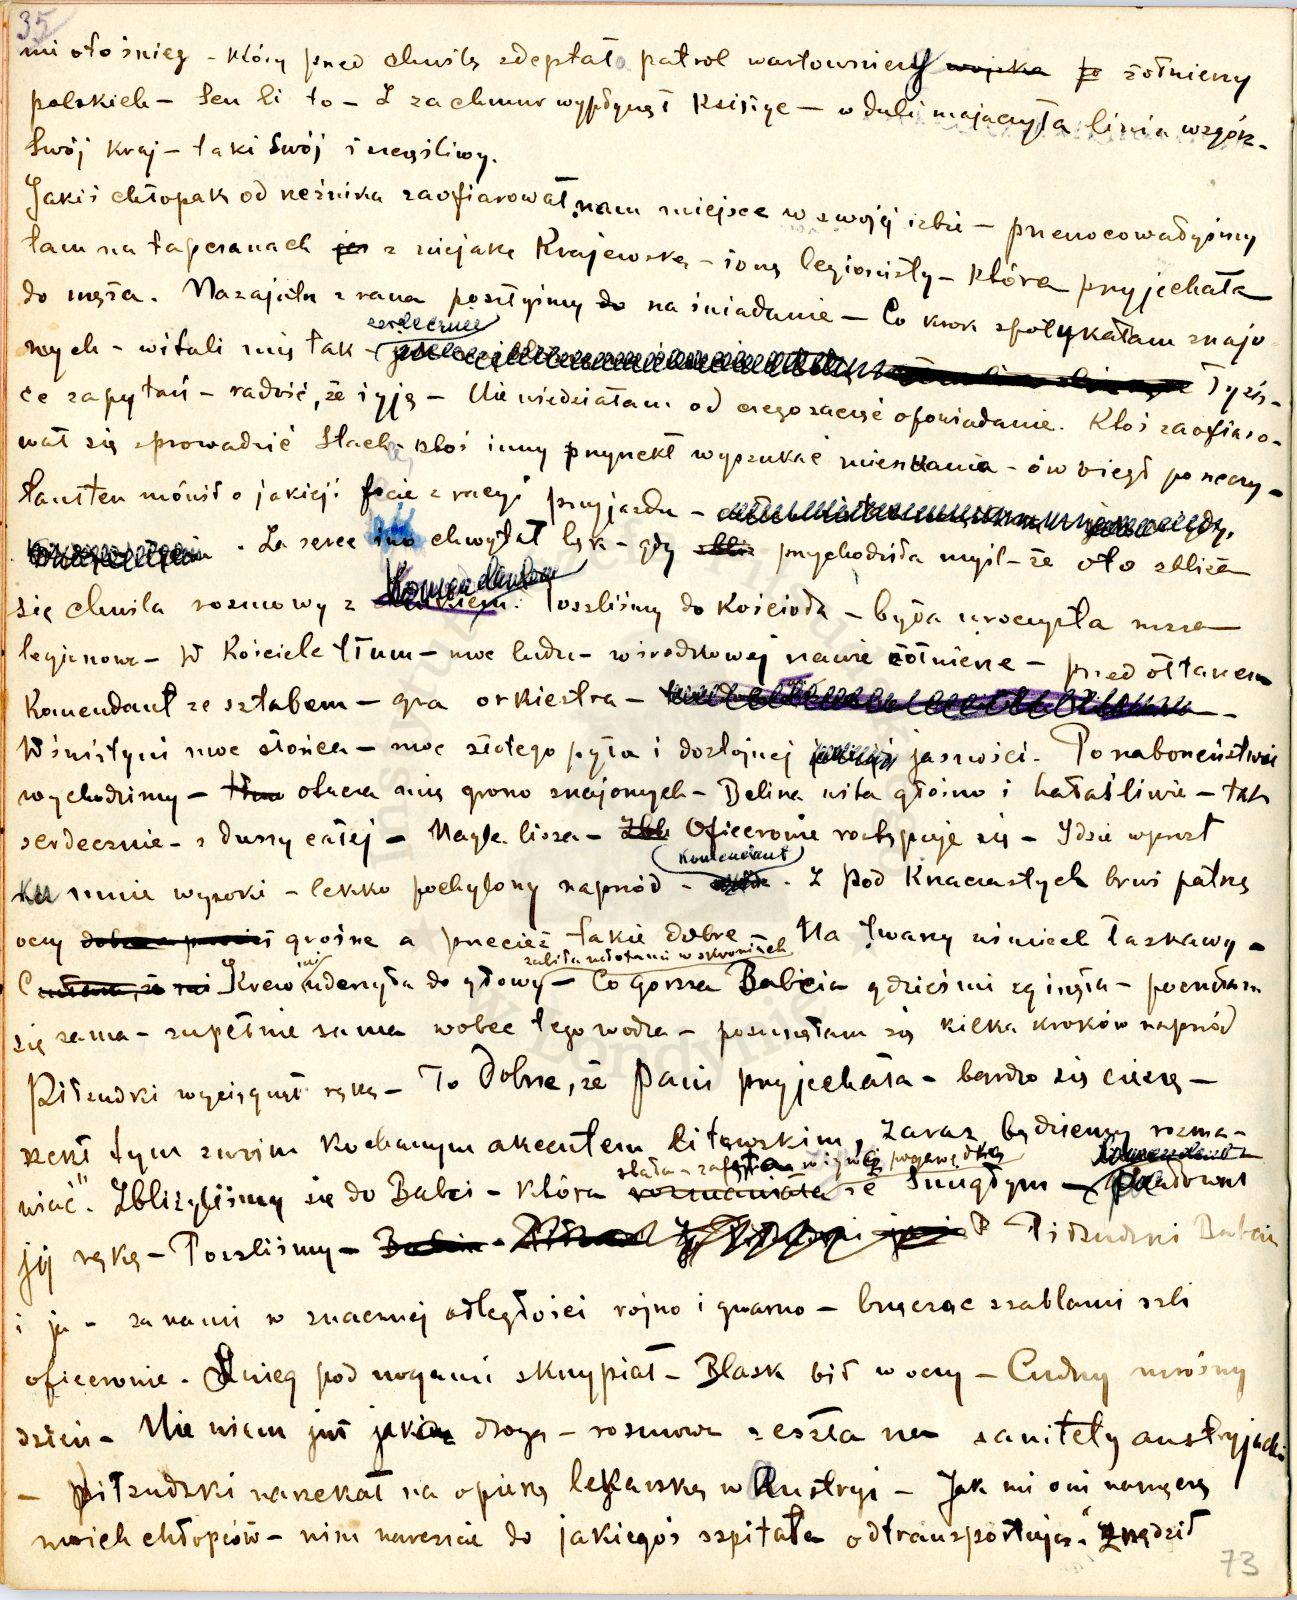 35
mi oto śnieg - który przed chwilą zdeptał patrol wartowniczy wojska żołnierzy
polskich - Sen li to - Z za chmur wypłynął Księżyc - w dali majaczyła linia wzgórz -
Swój Kraj - taki Swój i
Jakiś chłopak od rzeźnika zaofiarował nam miejsce w swojej izbie - przenocowałyśmy
tam na tapczanach z niejaką Krajewską - żoną legionisty - która przyjechała
do męża. Nazajutrz z rana poszłyśmy do na śniadanie - Co krok spotykałam znajo-
mych - witali mię tak - serdecznie Tysią-
ce zapytań - radość, że żyję - Nie wiedziałam od czego zacząć opowiadanie. Ktoś zaofiaro-
wał się sprowadzić Stacha, ktoś inny przyrzekł wyszukać mieszkania - ów biegł po
tamten mówił o jakiejś fecie z racyi przyjazdu -
. Za serce ino chwytał lęk - gdy przychodziła myśl - że oto zbliża
się chwila rozmowy z Komendantem. Poszliśmy do Kościoła - była uroczysta msza
legionowa - W Kościele tłum - moc ludu - w środkowej nawie żołnierze - przed ołtarzem
Komendant ze sztabem - gra orkiestra -
W świątyni moc słońca - moc złotego pyłu i dostojnej jasności. Po nabożeństwie
wychodzimy - tłum otacza mię grono znajomych - Belina wita głośno i hałaśliwie - tak
serdecznie - z duszy całej - Nagle cisza - Oficerowie rozstępują się - Idzie wprost
ku mnie wysoki - lekko pochylony naprzód - Komendant. Z pod Krzaczastych brwi patrzą
oczy groźne a przecież takie dobre Na twarzy uśmiech łaskawy -
Krew mi uderzyła do głowy - zabiła młotami w skroniach Co gorsza Babcia gdzieś mi zginęła - poczułam
się sama - zupełnie sama wobec tego wodza - posunęłam się kilka kroków naprzód
Piłsudski wyciągnął rękę - To Dobrze, że Pani przyjechała - bardzo się cieszę -
rzekł tym swoim kochanym akcentem litewskim, zaraz będziemy rozma-
wiać". Zbliżyliśmy się do Babci - która stała - zajęta żywą pogawędką rozmawiała ze Smigłym - Komendant
jej rękę - Poszliśmy - Piłsudski Babcia
i ja - za nami w znacznej odległości rojno i gwarno - brzęcząc szablami szli
oficerowie. Śnieg pod nogami skrzypiał - Blask bił w oczy - Cudny mroźny
dzień - Nie wiem już jaką drogą - rozmowa zeszła na sanitety austryjackie
- Piłsudski narzekał na opiekę lekarską w Austryi - Jak mi oni namęczą
moich chłopców - nim nareszcie do jakiegoś szpitala odtransportują."
73